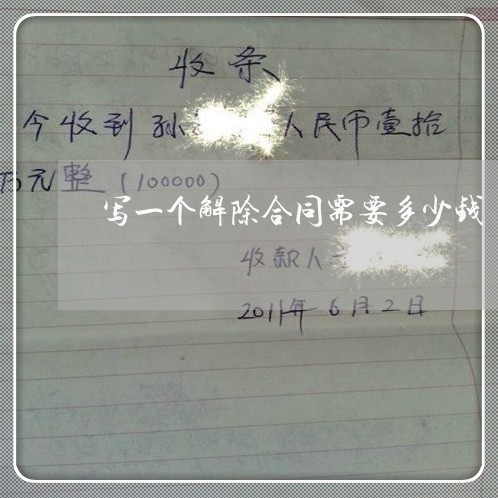 收条
今收到孙 人民币壹拾
万元整(100000)
写一个解除合同需要多少钱
收款人
2011年6月2日